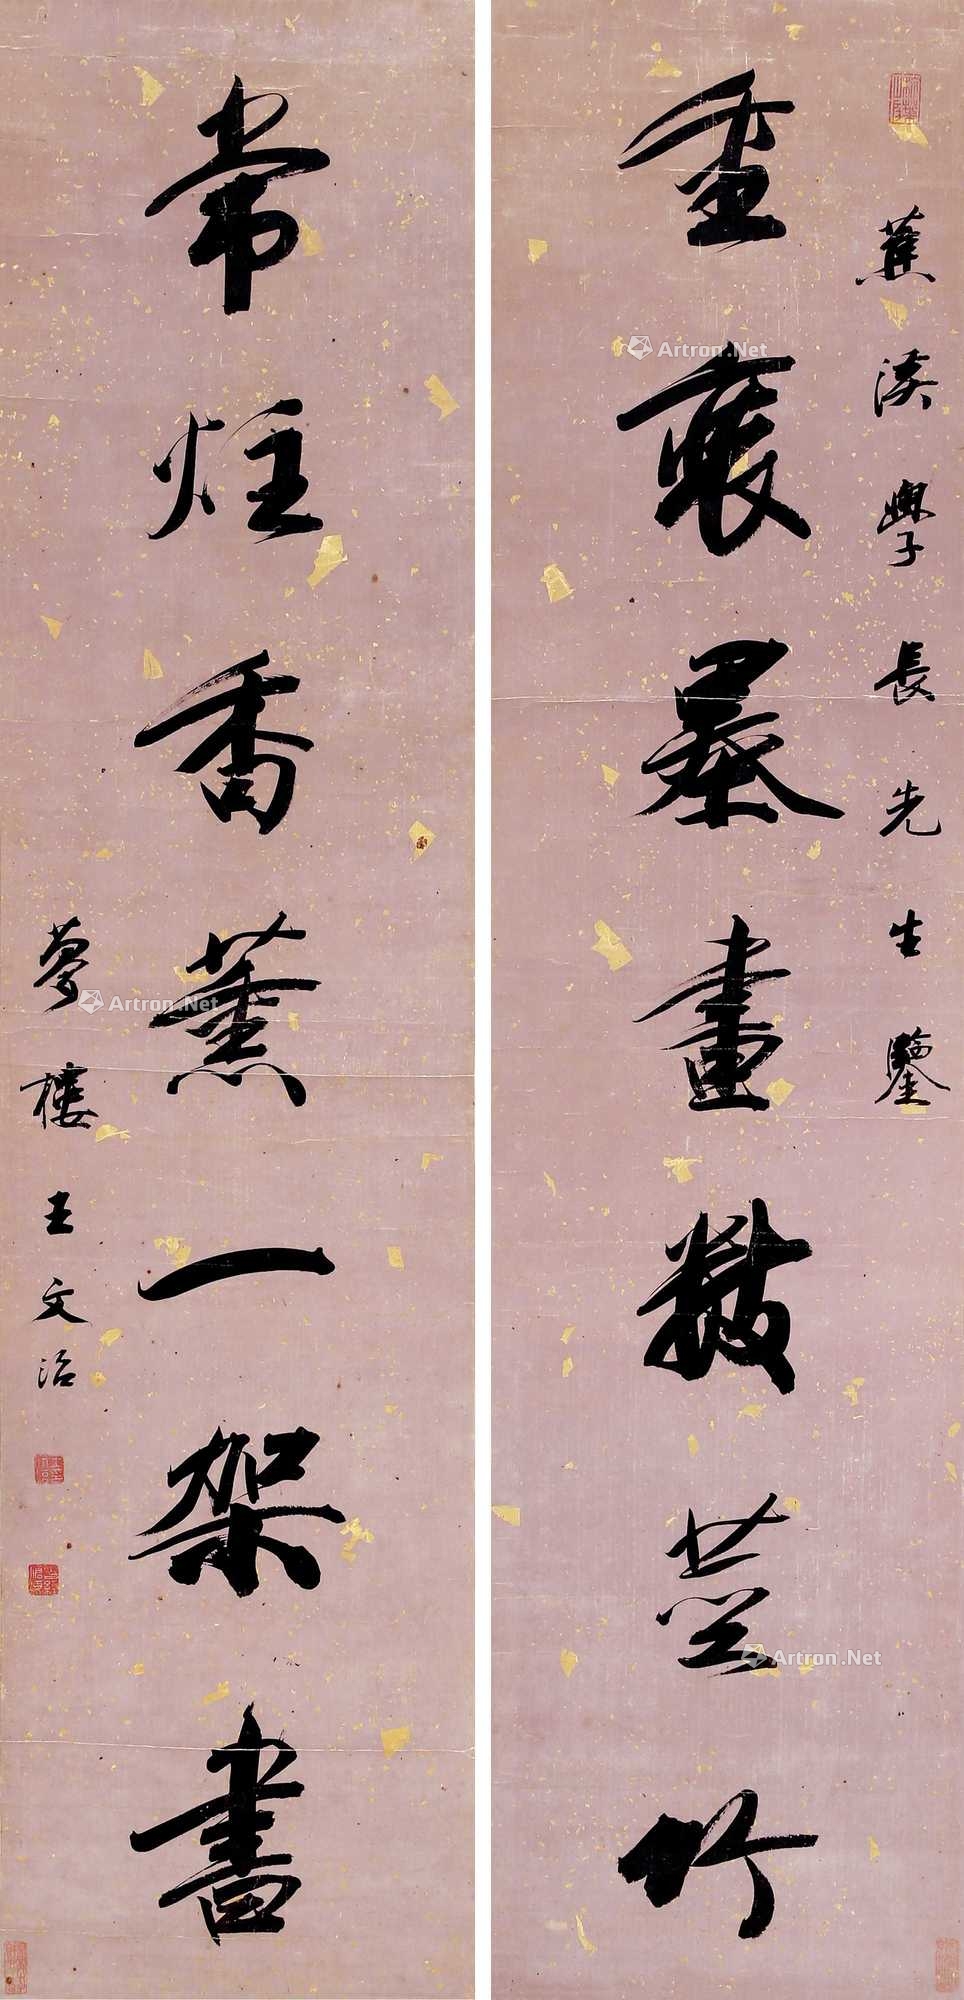 蕉溪學長先生鑒
重裝墨畫數莖竹
常炷香薰一架書
夢樓王文治
Artron.Net
Artron.Net
Artron.Net